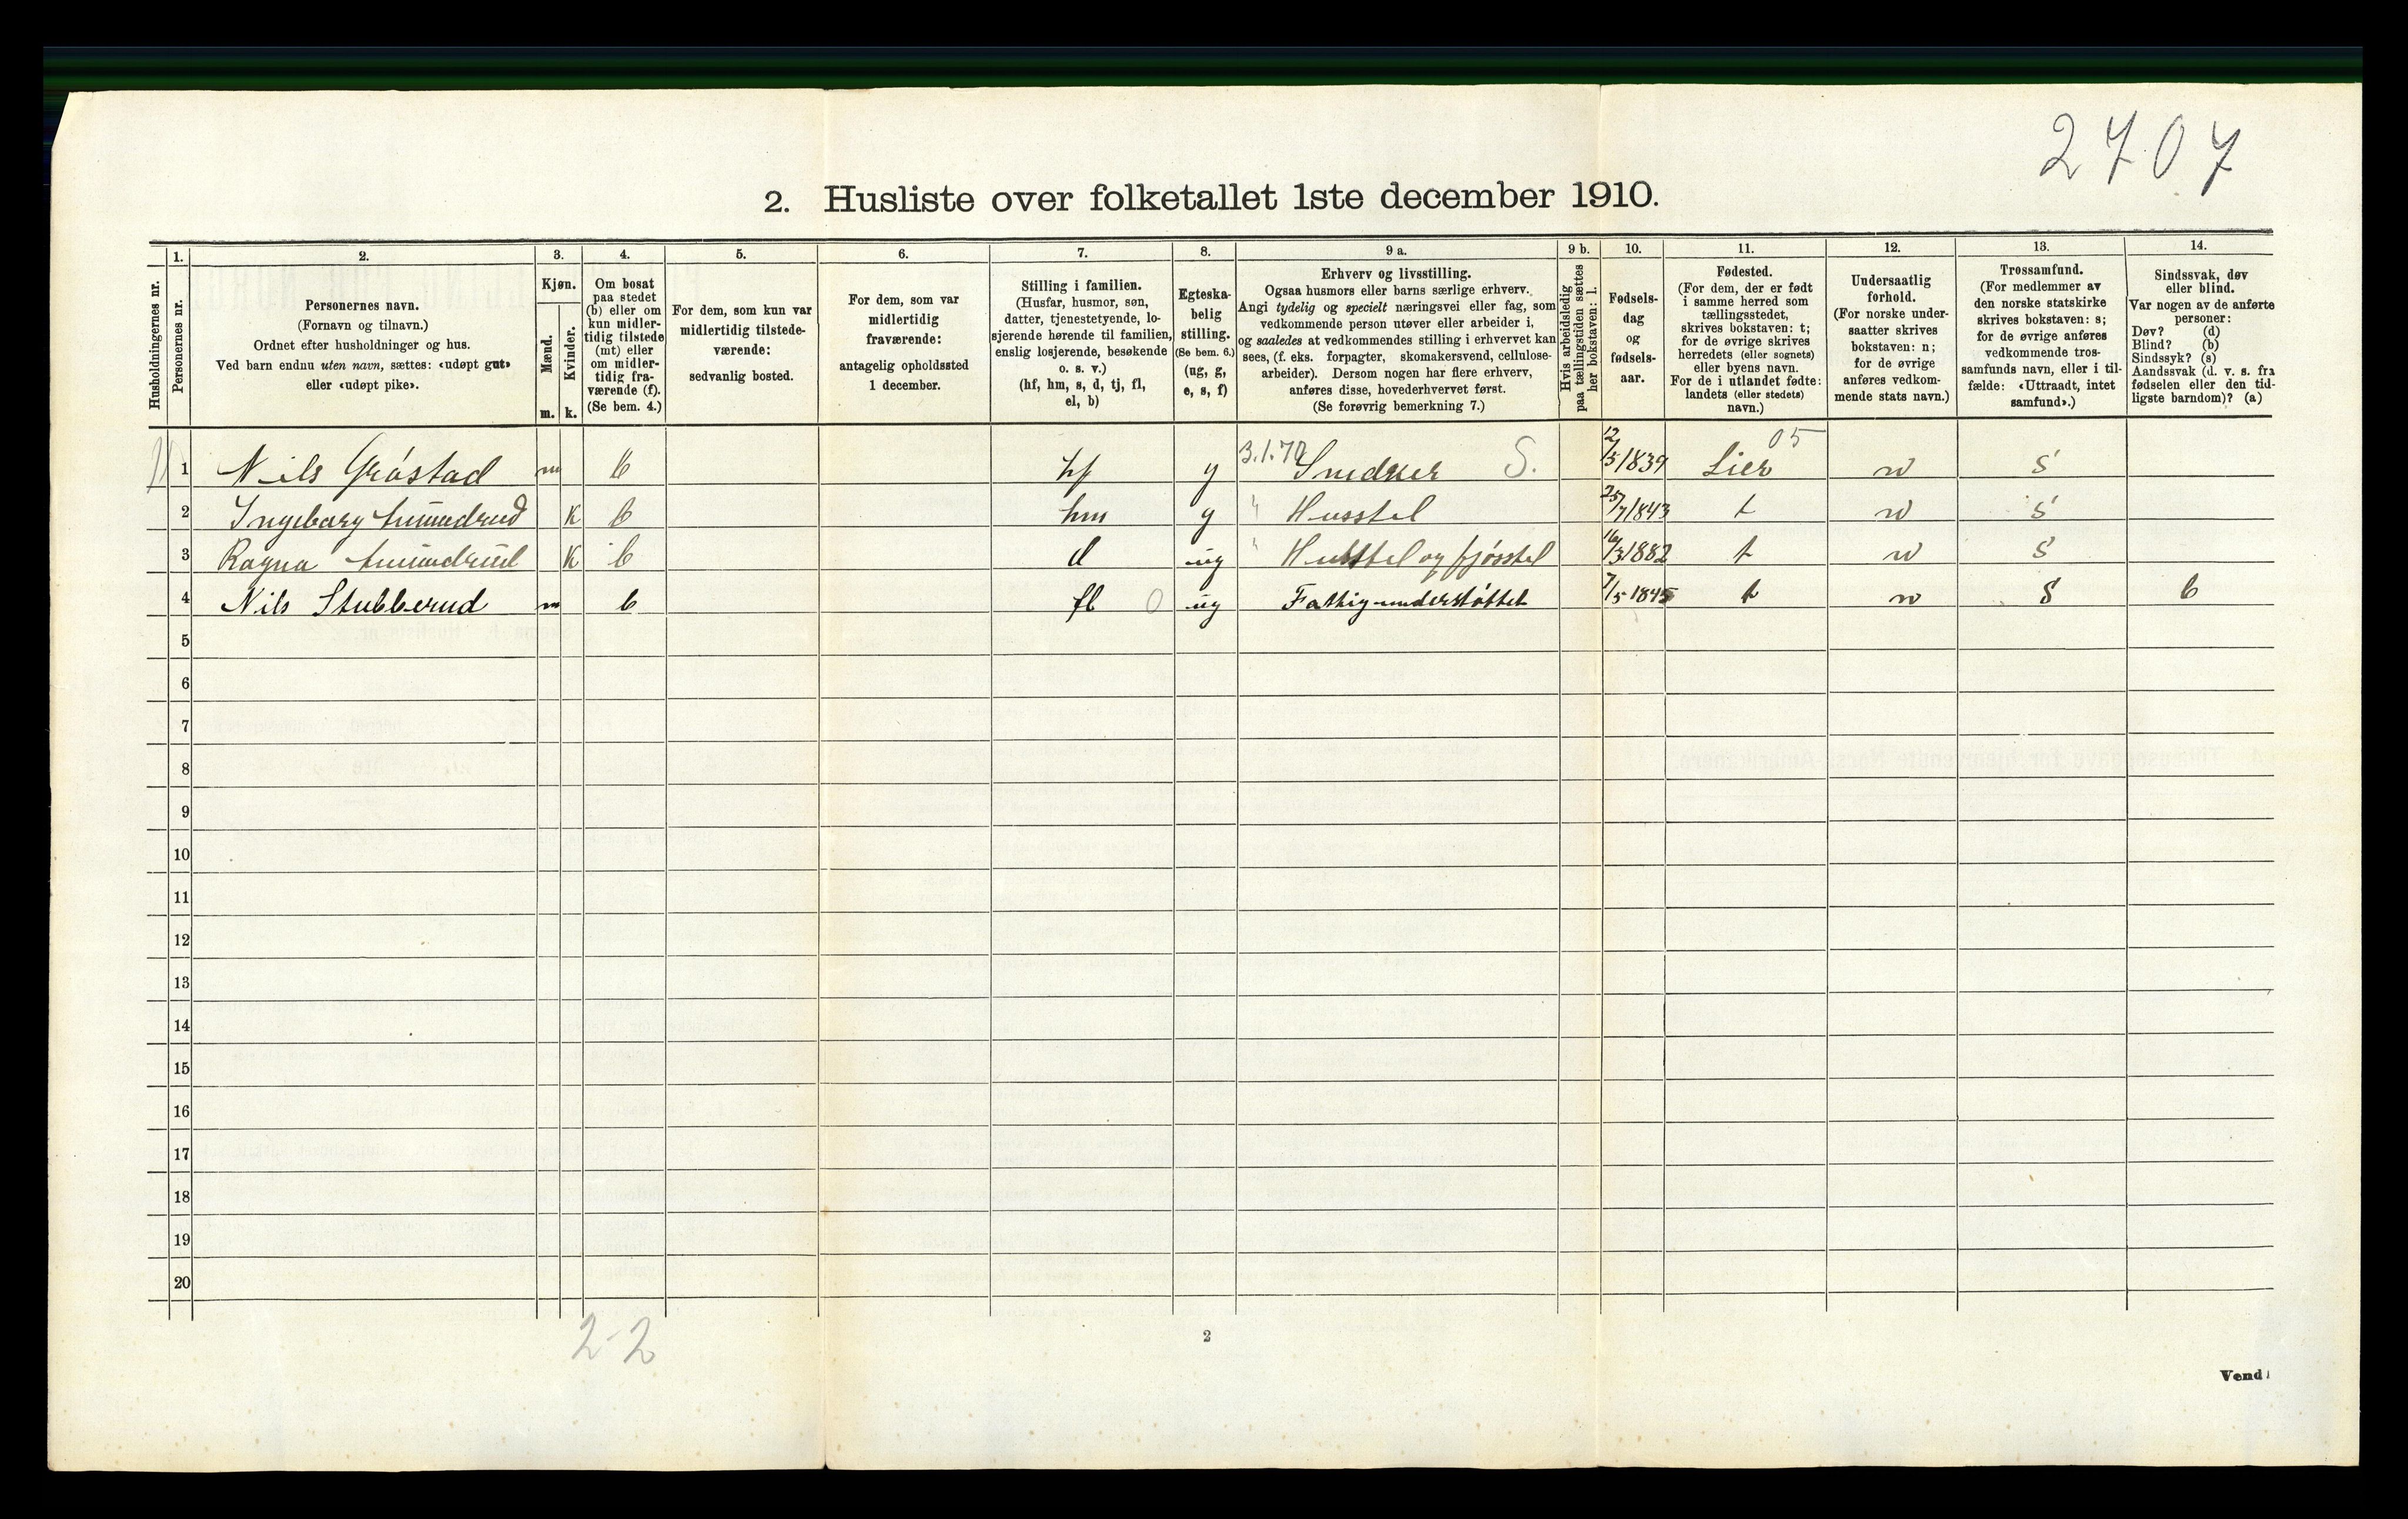 2707
2. Husliste over folketallet 1ste december 1910.
Husholdningernes nr.
1.
Personernes nr.
2.
Personernes navn.
(Fornavn og tilnavn.)
Ordnet efter husholdninger og hus.
Ved barn endnu uten navn, sættes: «udøpt gut»
eller «udøpt pike».
3.
Kjøn.
Mænd.
m.
Kvinder.
k.
4.
Om bosat
paa stedet
(b) eller om
kun midler-
tidig tilstede
(mt) eller
om midler-
tidig fra-
værende (f).
(Se bem. 4.)
5.
For dem, som kun var
midlertidig tilstede-
værende:
sedvanlig bosted.
6.
For dem, som var
midlertidig
fraværende:
antagelig opholdssted
1 december.
7.
Stilling i familien.
(Husfar, husmor, søn,
datter, tjenestetyende, lo-
sjerende hørende til familien,
enslig losjerende, besøkende
o. s. v.)
(hf, hm, s, d, tj, fl,
el, b)
8.
Egteska-
belig
stilling.
(Se bem. 6.)
(ug, g,
e, s, f)
9 a.
Erhverv og livsstilling.
Ogsaa husmors eller barns særlige erhverv.
Angi tydelig og specielt næringsvei eller fag, som
vedkommende person utøver eller arbeider i,
og saaledes at vedkommendes stilling i erhvervet kan
sees, (f. eks. forpagter, skomakersvend, cellulose-
arbeider). Dersom nogen har flere erhverv,
anføres disse, hovederhvervet først.
(Se forøvrig bemerkning 7.)
9 b.
Hvis arbeidsledig
paa tællingstiden sættes
her bokstaven: l.
10.
Fødsels-
dag
og
fødsels-
aar.
11.
Fødested.
(For dem, der er født
i samme herred som
tællingsstedet,
skrives bokstaven: t;
for de øvrige skrives
herredets (eller sognets)
eller byens navn.
For de i utlandet fødte:
landets (eller stedets)
navn.)
12.
Undersaatlig
forhold.
(For norske under-
saatter skrives
bokstaven: n;
for de øvrige
anføres vedkom-
mende stats navn.)
13.
Trossamfund.
(For medlemmer av
den norske statskirke
skrives bokstaven: s;
for de øvrige anføres
vedkommende tros-
samfunds navn, eller i til-
fælde: «Uttraadt, intet
samfund».)
14.
Sindssvak, døv
eller blind.
Var nogen av de anførte
personer:
Døv? (d)
Blind? (b)
Sindssyk? (s)
Aandssvak (d. v. s. fra
fødselen eller den tid-
ligste barndom)? (a)
1 Nils Gróstad m b hf g 3.1.70 Snedker S. 12/5 1839 Lier 05 n S
2 Ingeborg Amundrud K b hm g " Husstel 25/7 1843 t n S
3 Ragna Amundrud K b d ug " Husstel og fjósstel 16/3 1882 t n S
4 Nils Stubberud m b fl 0 ug Fattigunderstóttet 7/5 1845 t n S b
5
6
7
8
9
10
11
12
13
14
15
16
17
18
19
20
2-2
2
Vend!